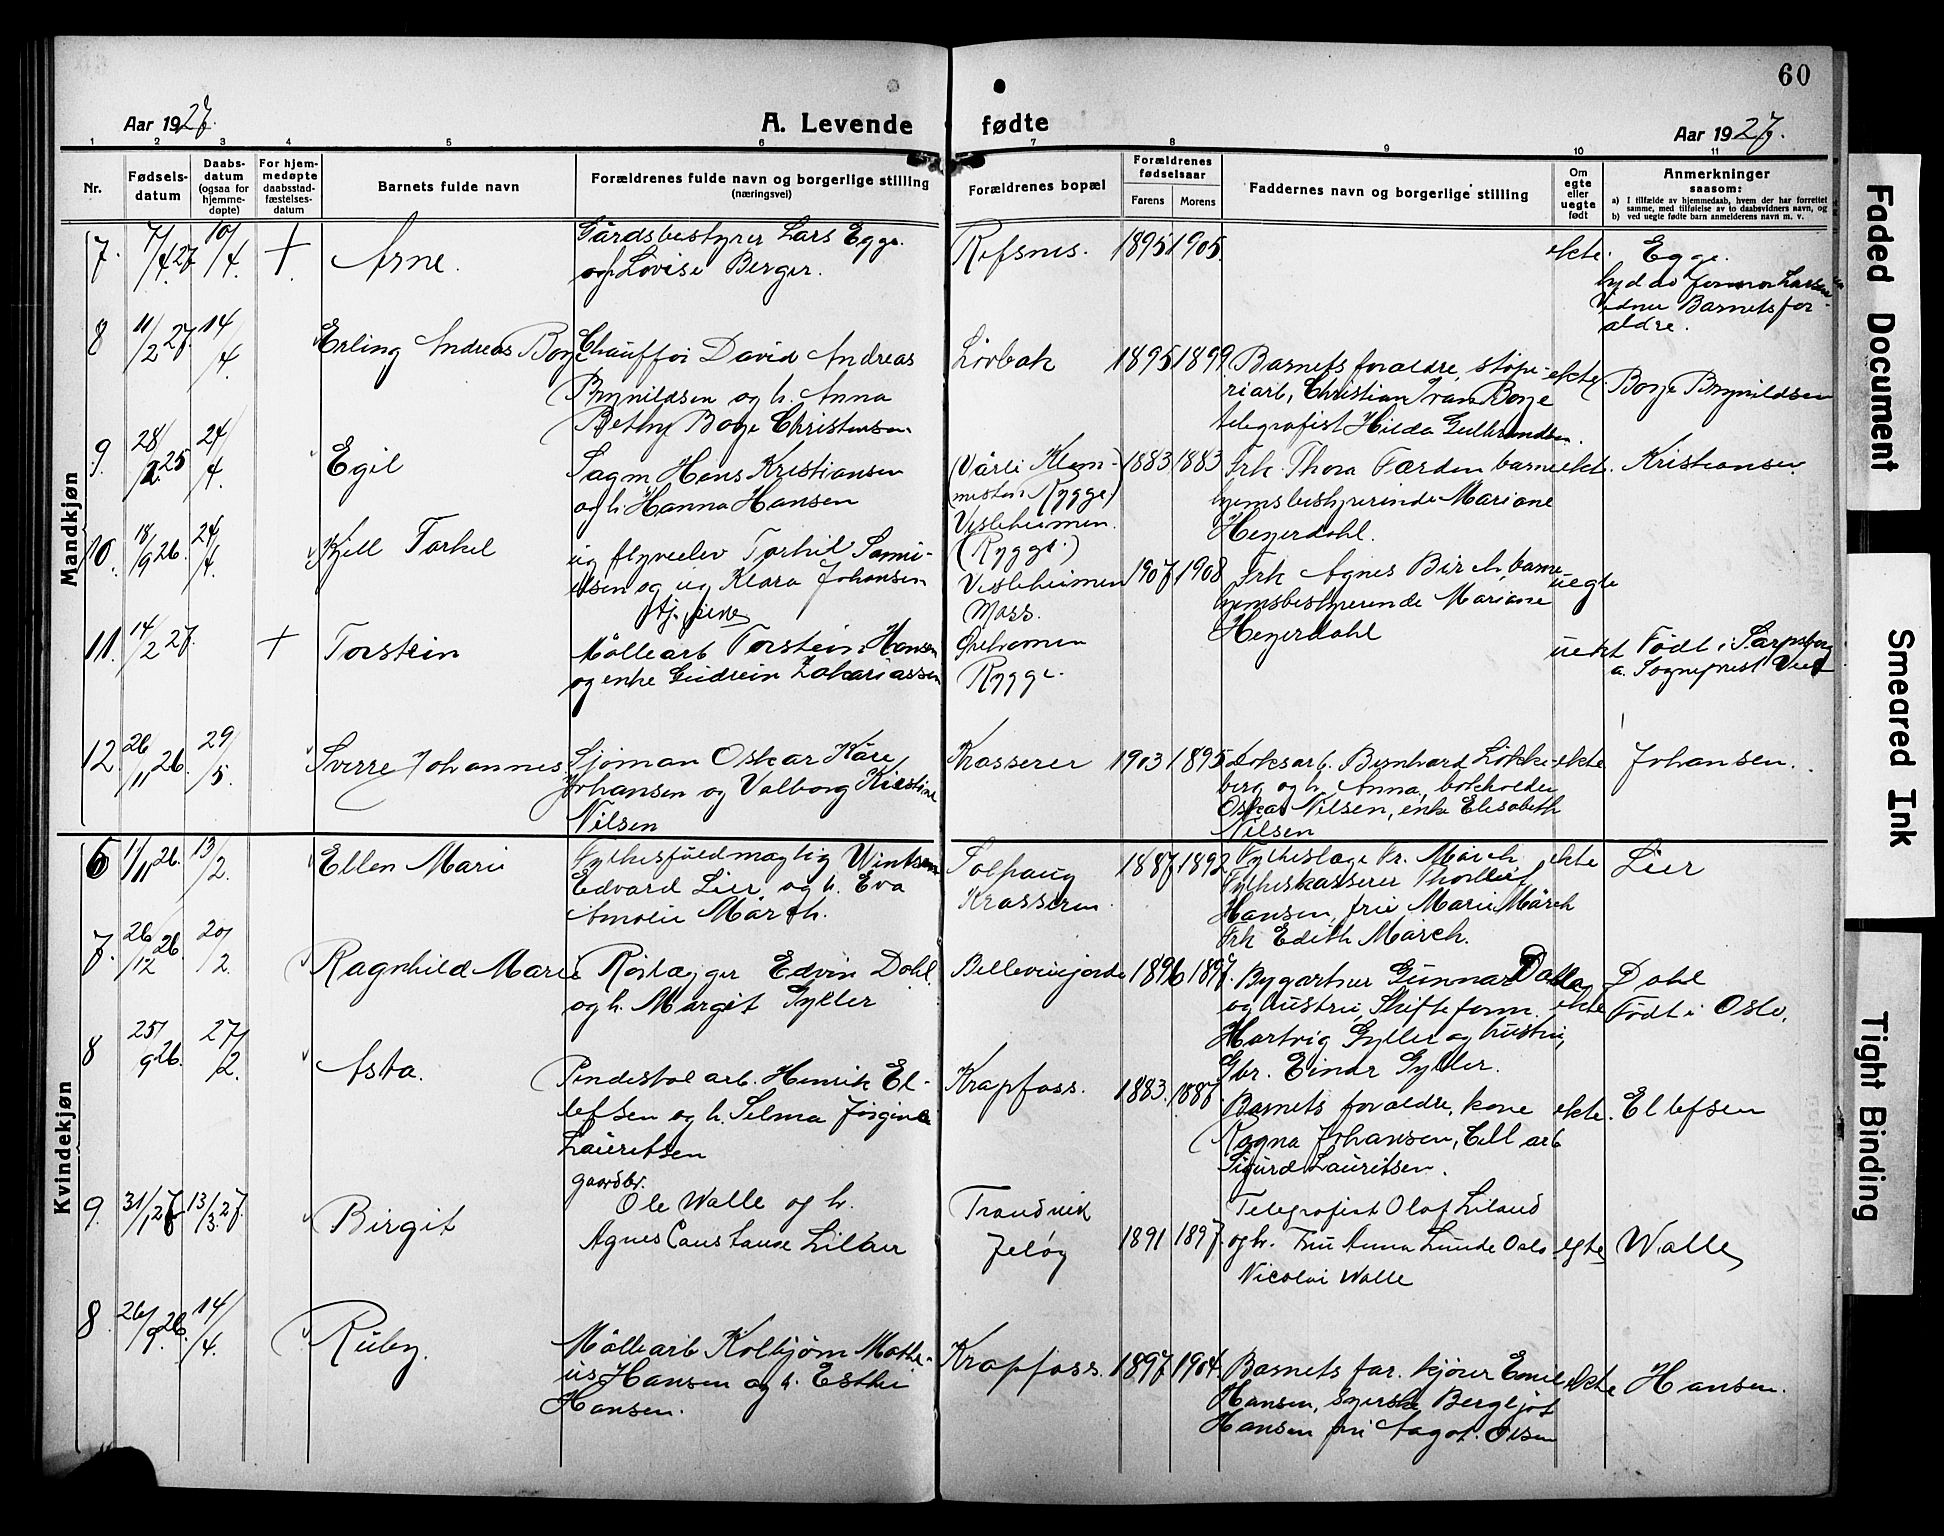 60
Aar 1927.
A. Levende fødte
Aar 1927.
1 2 3 4 5 6 7 8 9 10 11
Nr.
Fødsels-
datum
Daabs-
datum
(ogsaa for
hjemme-
døpte)
For hjem-
medøpte
daabsstad-
fæstelses-
datum
Barnets fulde navn
Forældrenes fulde navn og borgerlige stilling
(næringsvei)
Forældrenes bopæl
Forældrenes
fødselsaar
Farens
Morens
Faddernes navn og borgerlige stilling
Om
egte
eller
uegte
født
Anmerkninger
saasom:
a) I tilfælde av hjemmedaab, hvem der har forrettet
samme, med tilføielse av to daabsvidners navn, og
b) ved uegte fødte barn anmelderens navn m. v.
Mandkjøn
7. 7/4 27 10/4. + Arne.
Gårdsbestyrer Lars Egge.
og h. Lovise Berger.
Refsnes. 1895 1905. ekte. Egge.
Vidner Barnets for-
ældre.
8 11/2 27. 14/4 Erling Andreas Borge
Chauffør David Andreas
Brynildsen og h. Anna
Bethy Borge Christensen.
Lovbak 1895 1899
Barnets forældre, støpe-
riarb, Christian Ivan Borge
telegrafist Hilda Gulbrandsen.
ekte. Borge Brynildsen
9. 28/2 25 24/4. Egil
Sagm Hans Kristiansen
og h. Hanna Hansen
(Vårli Klom-
mesten Rygge)
Vesleheimen.
(Rygge.)
1883 1883
Frk. Thora Færden barne-
hjemsbestyrerinde Mariane
Heyerdahl.
ekt. Kristiansen
10. 18/9 26. 24/4. Kjell Torkel
ug flyveelev Torkil Samu-
elsen og ug Klara Johansen
tj. pike
Vesleheimen
Moss.
1907 1908
Frk Agnes Birch, barne
hjemsbestyrerinde Mariane
Heyerdahl
uegte
11. 14/2 27. + Torstein
Møllearb Torstein Hansen
og enke Gudrun Zakariassen
Ørehavnen
Rygge.
uekt Født i Sarpsborg
a. Sogneprest
12. 26/11 26. 29/5. Sverre Johannes
Sjøman Oskar Kåre
Johansen og Valborg Kirstine
Nilsen
Krasserer 1903 1895
Loksarb. Bernhard Løkke-
berg og h. Anna, bokholder
Oskar Nilsen, enke Elisabeth
Nilsen
ekte Johansen.
Kvindekjøn
6 11/11 26. 13/2. Ellen Marie
Fylkesfuldmægtig
Edvard Lier og h. Eva
Amalie Mårch.
Solhaug
Krasseren.
1887 1892
Fylkeslæge Fr. Mårch
Fylkeskasserer Thorleif
Hansen, frue Marie Mårch
Frk Edith Mårch.
ekte Lier
7. 26/12 26 20/2. Ragnhild Marie
Rørlægger Edvin Dahl
og h. Margit Gyller
Bellevuejorde 1896 1897.
Bygartner Gunnar Dahl
og hustru, Skifteform.
Hartvig Gyller og hustru,
Gbr. Einar Gyller.
ekte Dahl
Født i Oslo.
8 25/9 26. 27/2. Asta.
Pindestol arb. Henrik El-
lefsen og h. Selma Jørgine
Lauritsen
Krapfoss. 1883.
Barnets forældre, kone
Ragna Johansen, Cell arb
Sigurd Lauritsen.
ekte. Ellefsen
9. 31/1 27 13/3. 27. Birgit
gaardbr.
Ole Walle og h.
Agnes Constanse
Trondvik
Jeløy
1891 1897.
Telegrafist Olaf Liland
og h. Fru Anna Lunde Oslo
Nicolai Walle
egte Walle
8 26/9. 26. 14/4. Ruby.
Møllearb Kolbjørn Mathe-
us Hansen og h. Esther
Hansen.
Krapfoss. 1897 1904.
Barnets far. kjører Emil
Hansen, syerske Bergljot
Hansen fru Aagot. Olsen
ekte Hansen.
Faded Document
Smeared Ink
Tight Binding